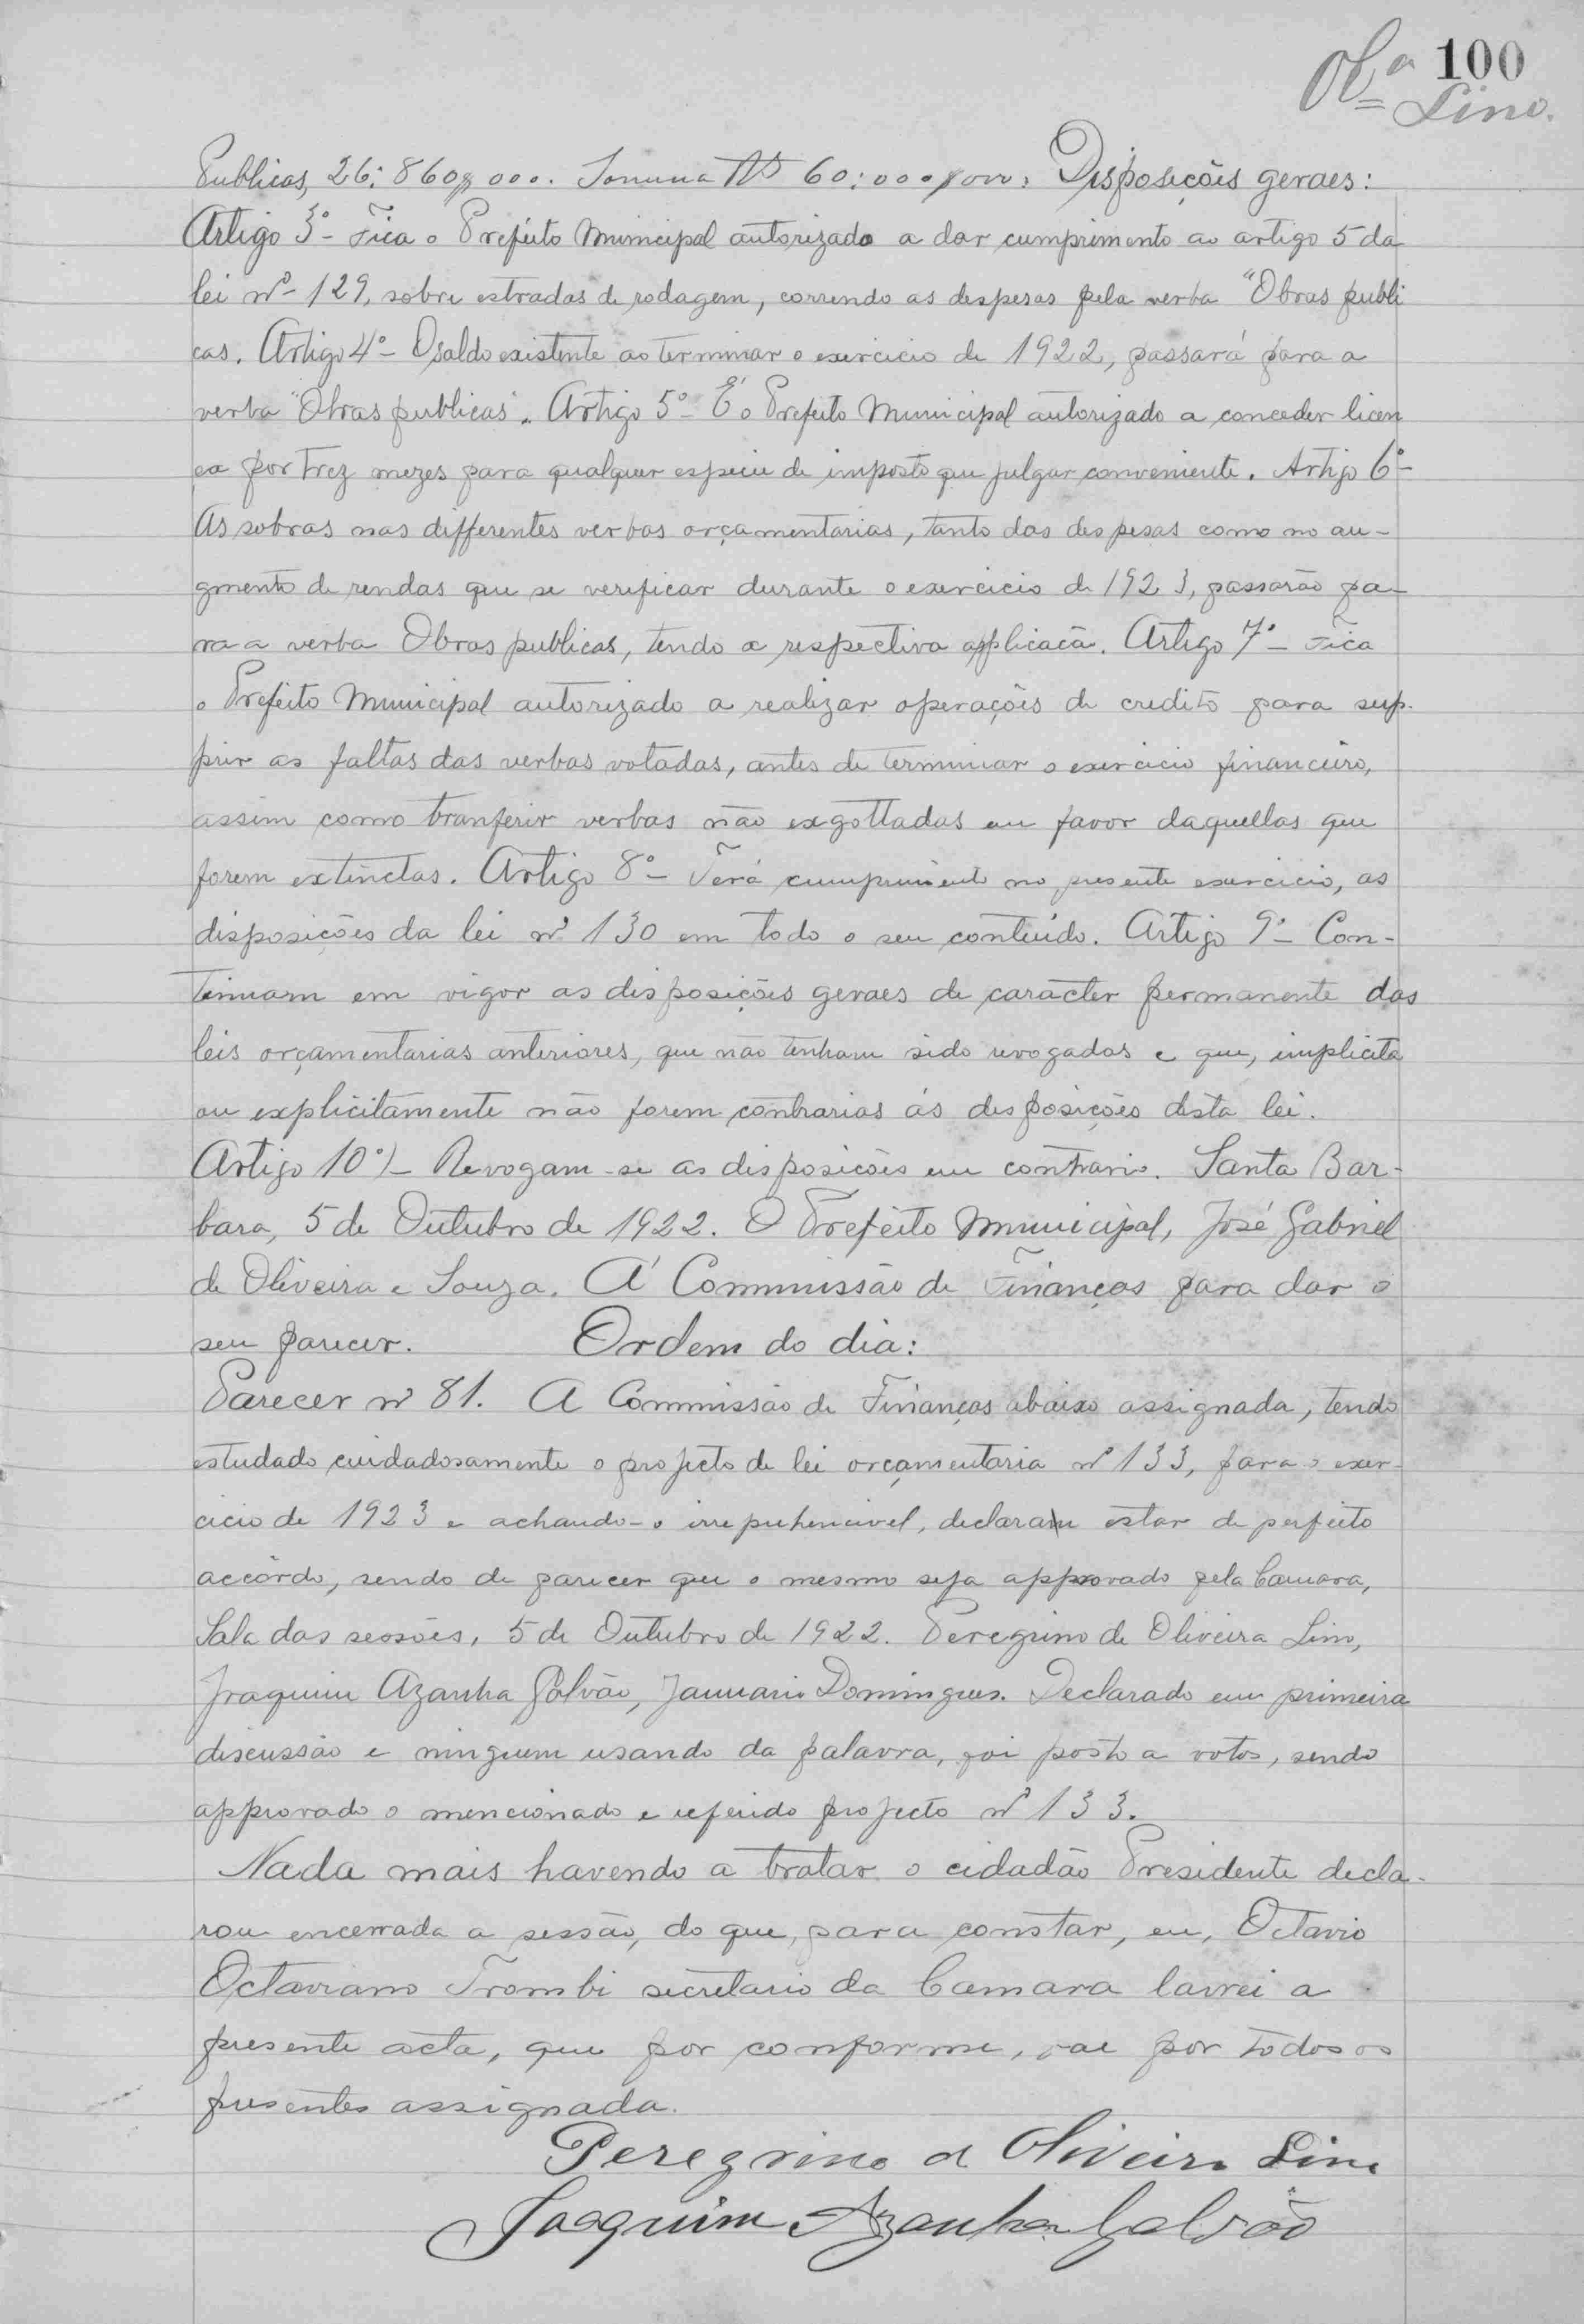 Olª 100
Lino.
Publicas, 26:860$000. Somma Rs 60:000$000. Disposições geraes:
Artigo 3º - Fica o Prefeito Municipal autorizado a dar cumprimento ao artigo 5 da
lei nº 129, sobre estradas de rodagem, correndo as despesas pela verba "Obras publi
cas. Artigo 4º - O saldo existente ao terminar o exercicio de 1922, passará para a
verba "Obras publicas". Artigo 5º - É o Prefeito Municipal autorizado a conceder licen
ça por trez mezes para qualquer especie de imposto que julgar conveniente. Artigo 6º -
As sobras nas differentes verbas orçamentarias, tanto das despesas como no au-
gmento de rendas que se verificar durante o exercicio de 1923, passarão pa-
ra a verba Obras publicas, tendo a respectiva applicacã. Artigo 7º - Fica
o Prefeito Municipal autorizado a realizar operações de credito para sup-
prir as faltas das verbas votadas, antes de terminar o exercicio financeiro,
assim como tranferir verbas não exgottadas em favor daquellas que
forem extinctas. Artigo 8º - Terá cumprimento no presente exercicio, as
disposições da lei nº 130 em todo o seu contéudo. Artigo 9º - Con-
tinuam em vigor as disposições geraes de caracter permanente das
leis orçamentarias anteriores, que não tenham sido revogadas e que, implicita
ou explicitamente não forem contrarias ás disposições desta lei.
Artigo 10º) - Revogam-se as disposicões em contrario. Santa Bar-
bara, 5 de Outubro de 1922. O Prefeito Municipal, José Gabriel
de Oliveira e Souza. Á Commissão de Finanças para dar o
seu parecer. Ordem do dia:
Parecer nº 81. A Commissão de Finanças abaixo assignada, tendo
estudado cuidadosamente o projecto de lei orçamentaria nº 133, para o exer-
cicio de 1923 e achando-o irreprehencivel, declaram estar de perfeito
accôrdo, sendo de parecer que o mesmo seja approvado pela Camara,
Sala das sessões, 5 de Outubro de 1922. Peregrino de Oliveira Lino,
Joaquim Azanha Galvão, Januario Domingues. Declarado em primeira
discussão e ninguem usando da palavra, foi posto a votos, sendo
approvado o mencionado e referido projecto nº 133.
Nada mais havendo a tratar o cidadão Presidente decla-
rou encerrada a sessão, do que, para constar, eu, Octavio
Octaviano Trombi secretario da Camara lavrei a
presente acta, que por conforme, vae por todos os
presentes assignada.
Peregrino d Oliveira Lino
Joaquim Azanha Galvão